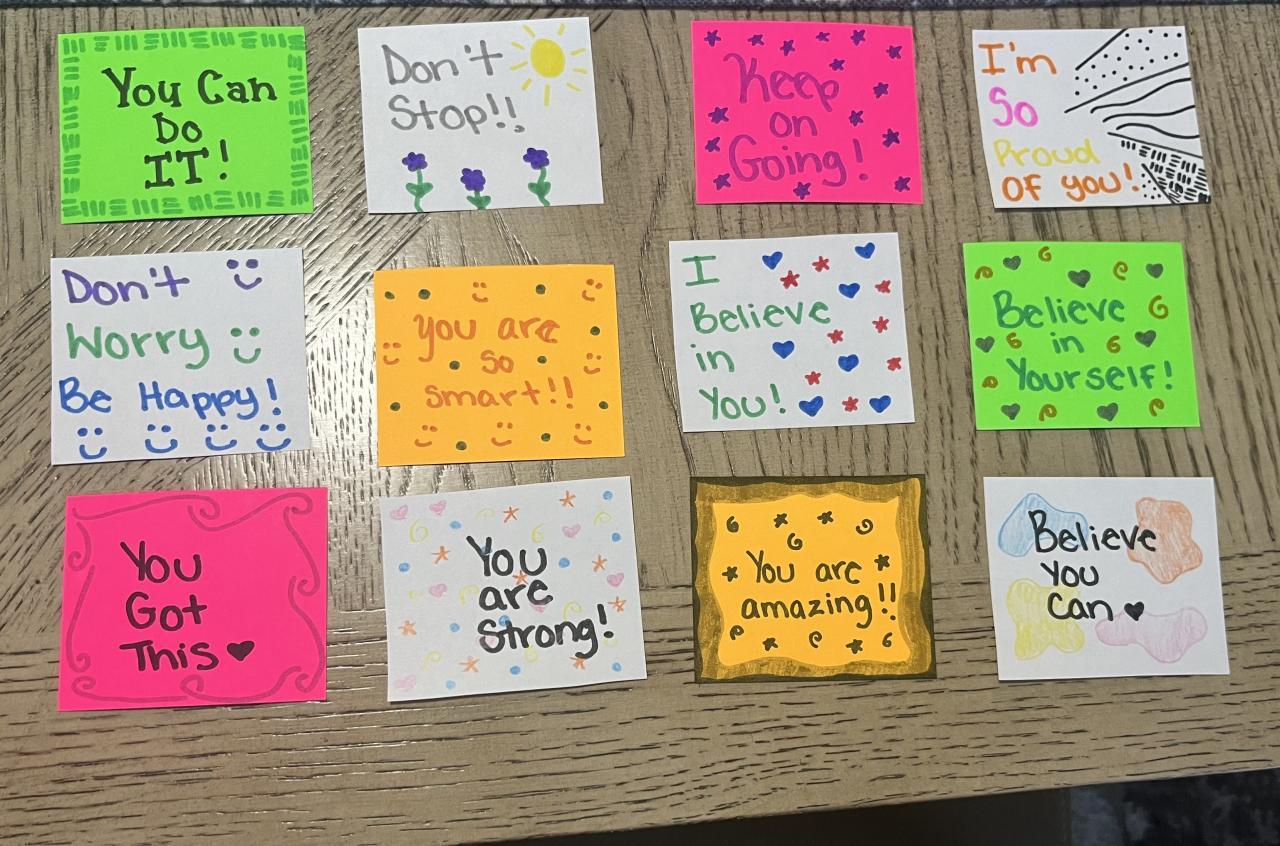 You Can
Do
IT!
Don't
Stop!!
Keep
on
Going!
I'm
So
Proud
OF you!
Don't
Worry
Be Happy!
you are
so
smart!!
I
Believe
in
You!
Believe
in
Yourself!
You
Got
This
You
are
Strong!
You are
amazing!!
Believe
You
Can